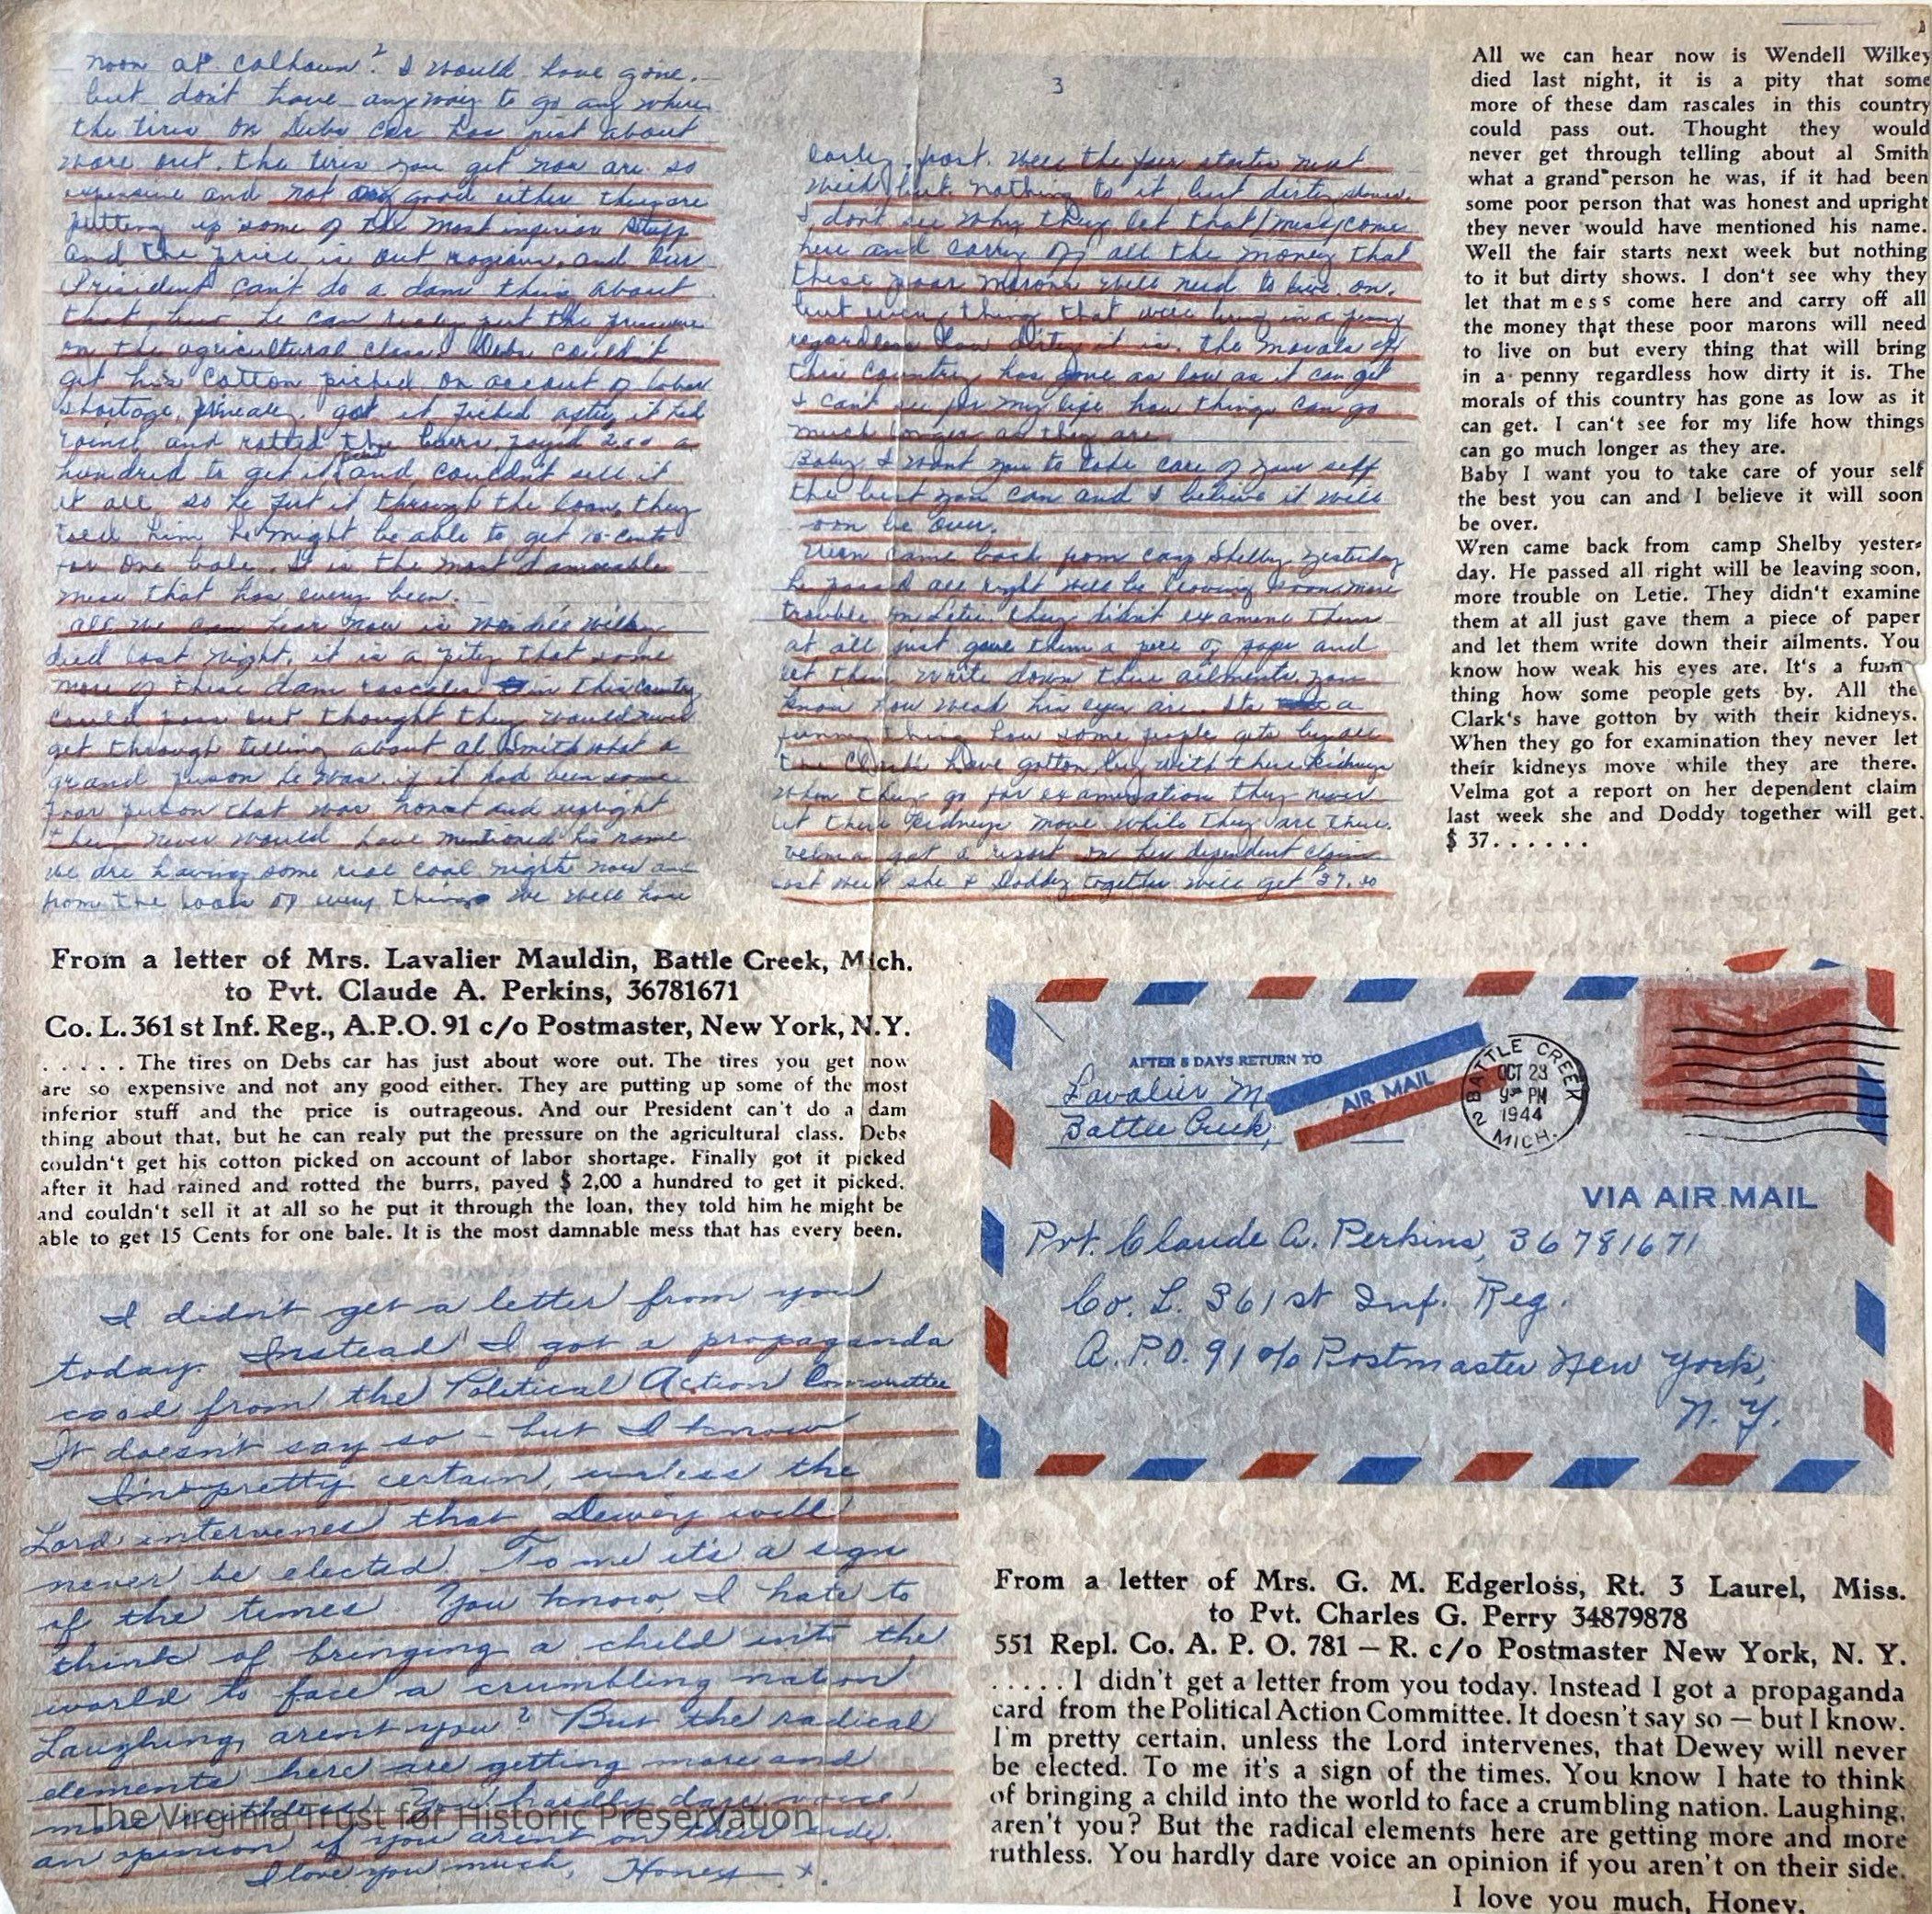 2
noon at Calhoun? I would have gone.
but don't have anyway to go any where
the tires on Debs car has just about
wore out. the tires you get now are so
expensive and not any good either they are
putting up some of the most inferior stuff
and the price is out rageous, and our
President can't do a dam thing about
that, but he can realy put the pressure
on the agricultural class. Debs couldn't
get his cotton picked on account of labor
shortage, finealy got it picked after it had
rained and rotted the burrs, payed 2.00 a
hundred to get it and couldn't sell it
it all so he put it through the loan, they
told him he might be able to get 15 cents
for one bale. It is the most damnable
mess that has every been.
all we can hear now is Wendell Wilkey
died last night, it is a pity that some
more of these dam rascales in this country
could pass out thought they would never
get through telling about al Smith what a
grand person he was. if it had been some
poor person that was honest and upright
they never would have mentioned his name
we are having some real cool nights now and
from the looks of every things we will have
3
early frost. Well the fair starts next
week but nothing to it but dirty shows.
I dont see why they let that mess come
here and carry off all the money that
these poor marons will need to live on.
but every thing that will bring in a penny
regardless how dirty it is. the morals of
this country has gone as low as it can get
I can't see for my life how things can go
much longer as they are
Baby I want you to take care of your self
the best you can and I believe it will
soon be over.
Wren came back from camp Shelby yesterday
he passed all right will be leaving soon more
trouble on Letie. they didn't examine them
at all just gave them a piece of paper and
let them write down their ailments, you
know how weak his eyes are. Its a
funny thing how some people gets by all
the Clarks have gotton by with there kidneys
when they go for examination they never
let there kidneys move while they are there.
Velma got a report on her dependent claim
last week she & Doddy together will get $37.20
All we can hear now is Wendell Wilkey
died last night, it is a pity that some
more of these dam rascales in this country
could pass out. Thought they would
never get through telling about al Smith
what a grand person he was, if it had been
some poor person that was honest and upright
they never would have mentioned his name.
Well the fair starts next week but nothing
to it but dirty shows. I don't see why they
let that mess come here and carry off all
the money that these poor marons will need
to live on but every thing that will bring
in a penny regardless how dirty it is. The
morals of this country has gone as low as it
can get. I can't see for my life how things
can go much longer as they are.
Baby I want you to take care of your self
the best you can and I believe it will soon
be over.
Wren came back from camp Shelby yester-
day. He passed all right will be leaving soon,
more trouble on Letie. They didn't examine
them at all just gave them a piece of paper
and let them write down their ailments. You
know how weak his eyes are. It's a funn
thing how some people gets by. All the
Clark's have gotton by with their kidneys.
When they go for examination they never let
their kidneys move while they are there.
Velma got a report on her dependent claim
last week she and Doddy together will get.
$ 37......
From a letter of Mrs. Lavalier Mauldin, Battle Creek, Mich.
to Pvt. Claude A. Perkins, 36781671
Co. L. 361st Inf. Reg., A.P.O. 91 c/o Postmaster, New York, N.Y.
. . . . . The tires on Debs car has just about wore out. The tires you get now
are so expensive and not any good either. They are putting up some of the most
inferior stuff and the price is outrageous. And our President can't do a dam
thing about that, but he can realy put the pressure on the agricultural class. Debs
couldn't get his cotton picked on account of labor shortage. Finally got it picked
after it had rained and rotted the burrs, payed $ 2,00 a hundred to get it picked.
and couldn't sell it at all so he put it through the loan, they told him he might be
able to get 15 Cents for one bale. It is the most damnable mess that has every been.
AFTER 5 DAYS RETURN TO
Lavalier M.
Battle Creek,
AIR MAIL
BATTLE CREEK
OCT 23
9 PM
1944
2 MICH.
VIA AIR MAIL
Pvt. Claude A. Perkins, 36781671
Co. L. 361st Inf. Reg.
A.P.O. 91 c/o Postmaster New York,
N. Y.
I didn't get a letter from you
today. Instead I got a propaganda
card from the Political Action Committee
It doesn't say so – but I know
I'm pretty certain, unless the
Lord intervenes that Dewey will
never be elected. To me it's a sign
of the times. You know, I hate to
think of bringing a child into the
world to face a crumbling nation
Laughing, arent you? But the radical
elements here are getting more and
more ruthless. You hardly dare voice
an opinion if you arent on their side.
I love you much, Honey x.
The Virginia Trust for Historic Preservation
From a letter of Mrs. G. M. Edgerloss, Rt. 3 Laurel, Miss.
to Pvt. Charles G. Perry 34879878
551 Repl. Co. A. P. O. 781 – R. c/o Postmaster New York, N. Y.
. . . . . I didn't get a letter from you today. Instead I got a propaganda
card from the Political Action Committee. It doesn't say so — but I know.
I'm pretty certain, unless the Lord intervenes, that Dewey will never
be elected. To me it's a sign of the times. You know I hate to think
of bringing a child into the world to face a crumbling nation. Laughing,
aren't you? But the radical elements here are getting more and more
ruthless. You hardly dare voice an opinion if you aren't on their side.
I love you much, Honey.